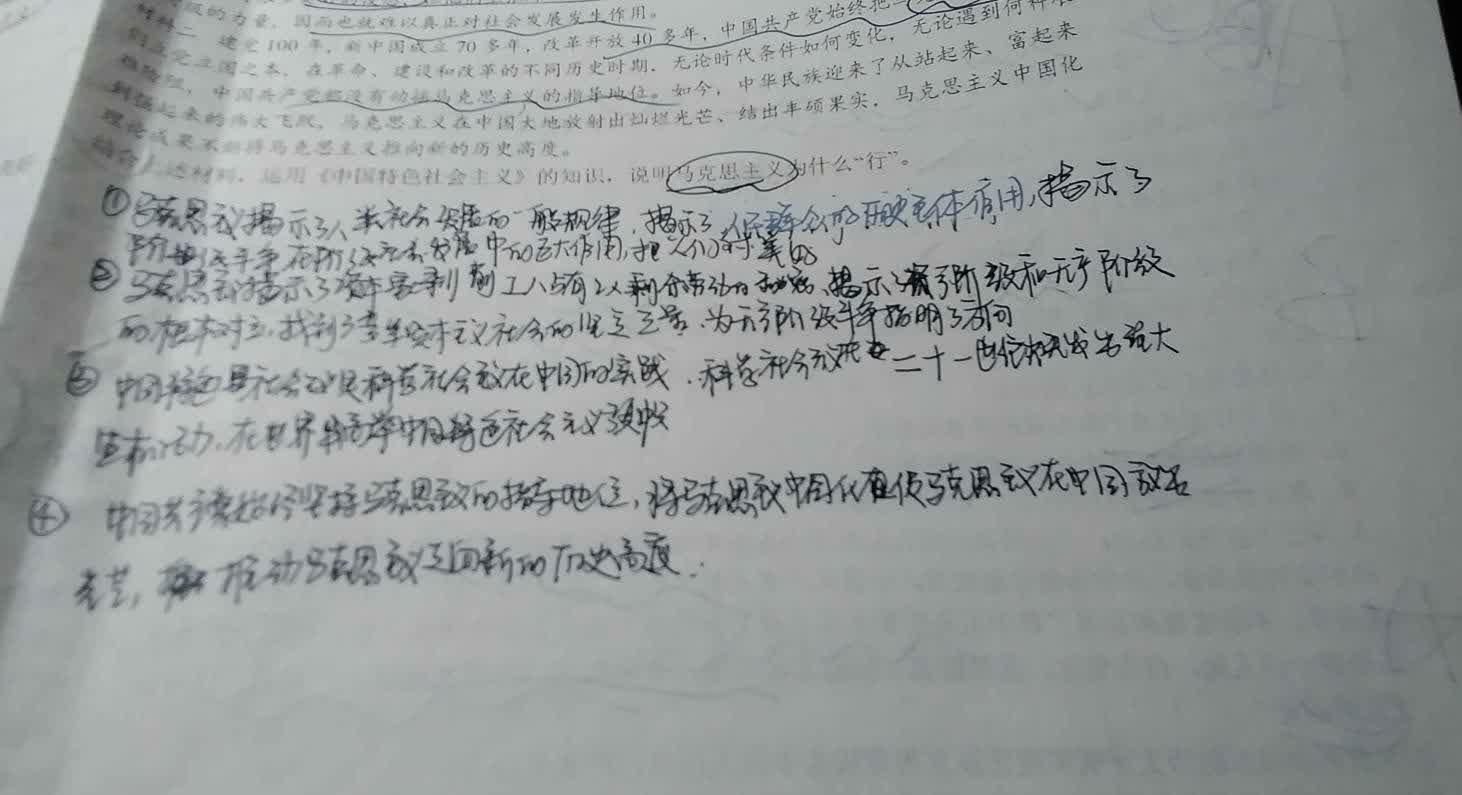 级的力量，因而也就难以真正对社会发展发生作用。
材料二 建党100年，新中国成立70多年，改革开放40多年，中国共产党始终把
立党立国之本，在革命、建设和改革的不同历史时期，无论时代条件如何变化，无论遇到何种
险阻，中国共产党都没有动摇马克思主义的指导地位。如今，中华民族迎来了从站起来、富起来
到强起来的伟大飞跃，马克思主义在中国大地放射出灿烂光芒、结出丰硕果实，马克思主义中国化
理论成果不断将马克思主义推向新的历史高度。
结合上述材料，运用《中国特色社会主义》的知识，说明马克思主义为什么“行”。
①马克思主义揭示了人类社会发展的一般规律，揭示了人民群众的历史主体作用，揭示了
阶级斗争在阶级社会发展中的巨大作用，把人们对美好
②马克思主义揭示了资本家剥削工人占有工人剩余劳动的秘密，揭示了资产阶级和无产阶级
的根本对立，找到了 资本主义社会的 ，为无产阶级斗争指明了方向
③中国特色社会主义是科学社会主义在中国的实践，科学社会主义在二十一世纪焕发出强大
生机活力，在世界 中国特色社会主义
④中国共产党始终坚持马克思主义的指导地位，将马克思主义中国化 使马克思主义在中国放出
光芒，推动马克思主义迈向新的历史高度。